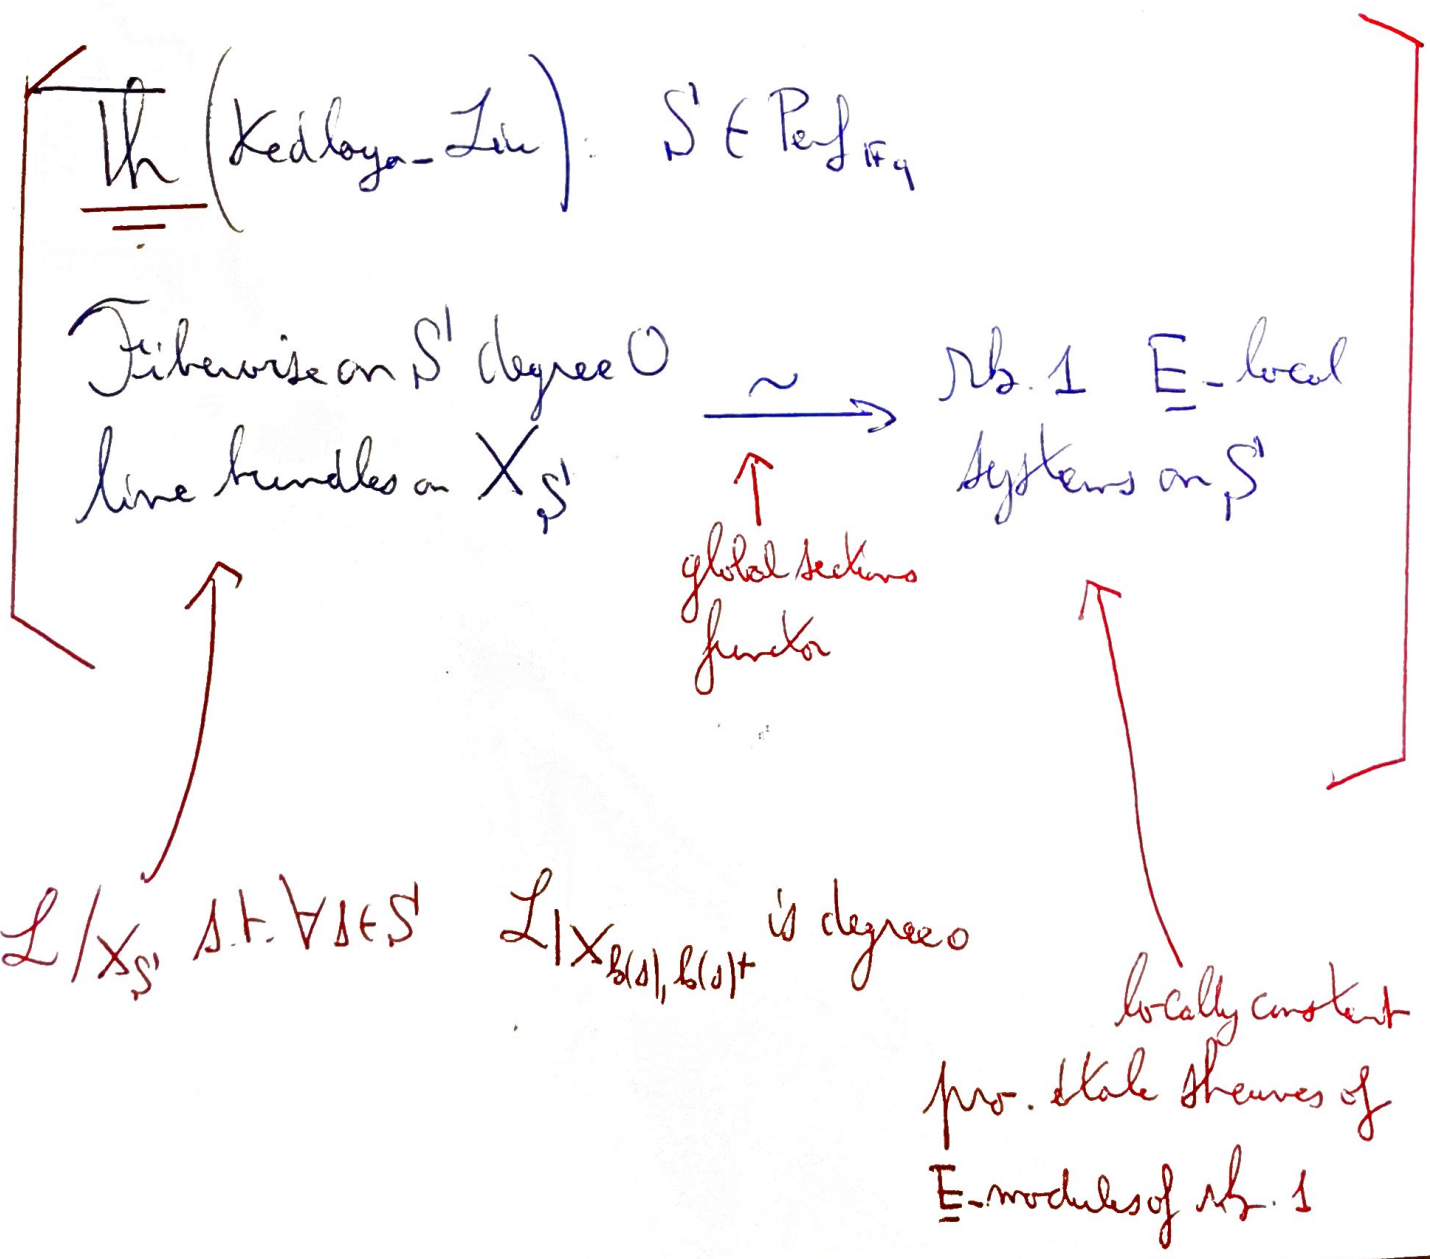 Th (Kedlaya-Liu): S ∈ Perf_{𝔽_q}
Fiberwise on S degree 0
line bundles on X_S
∼
→
rk. 1 E-local
systems on S
global sections
functor
ℒ/X_S s.t. ∀s∈S ℒ|X_{k(s), k(s)^+} is degree 0
locally constant
pro. étale sheaves of
E-modules of rk. 1